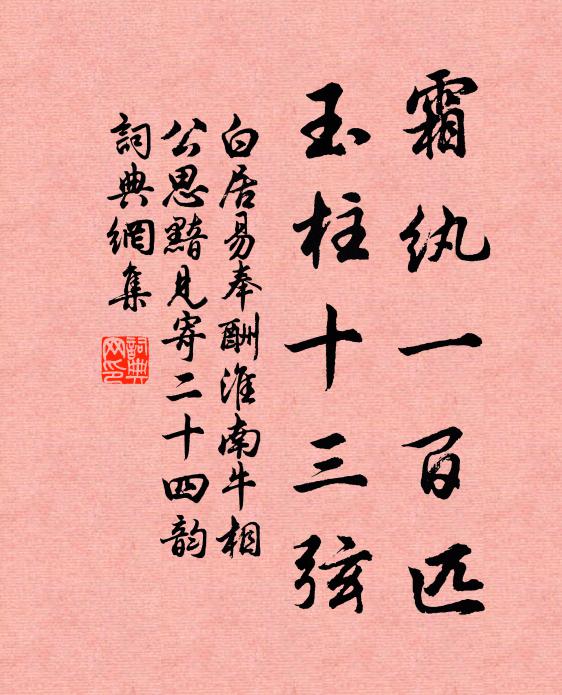 霜纨一百匹
玉柱十三弦
白居易奉酬淮南牛相
公思黯见寄二十四韵
詞典網集
詞典
网印